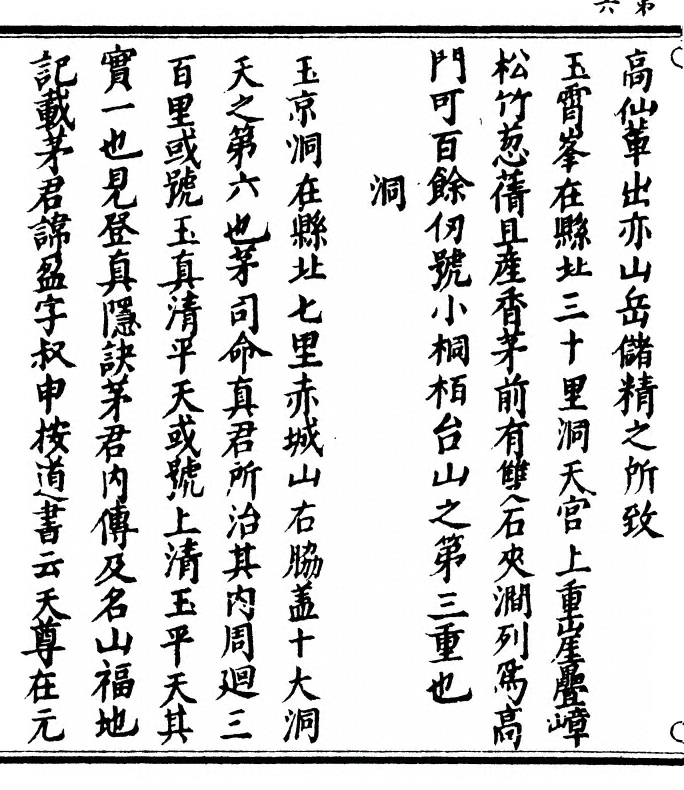 第六
高仙輩出亦山岳儲精之所致
玉霄峯在縣北三十里洞天宮上重崖疊嶂
松竹葱蒨且產香茅前有雙石夾澗列為高
門可百餘仞號小桐栢台山之第三重也
洞
玉京洞在縣北七里赤城山右脇盖十大洞
天之第六也茅司命真君所治其内周廻三
百里或號玉真清平天或號上清玉平天其
實一也見登真隱訣茅君内傳及名山福地
記載茅君諱盈字叔申按道書云天尊在元